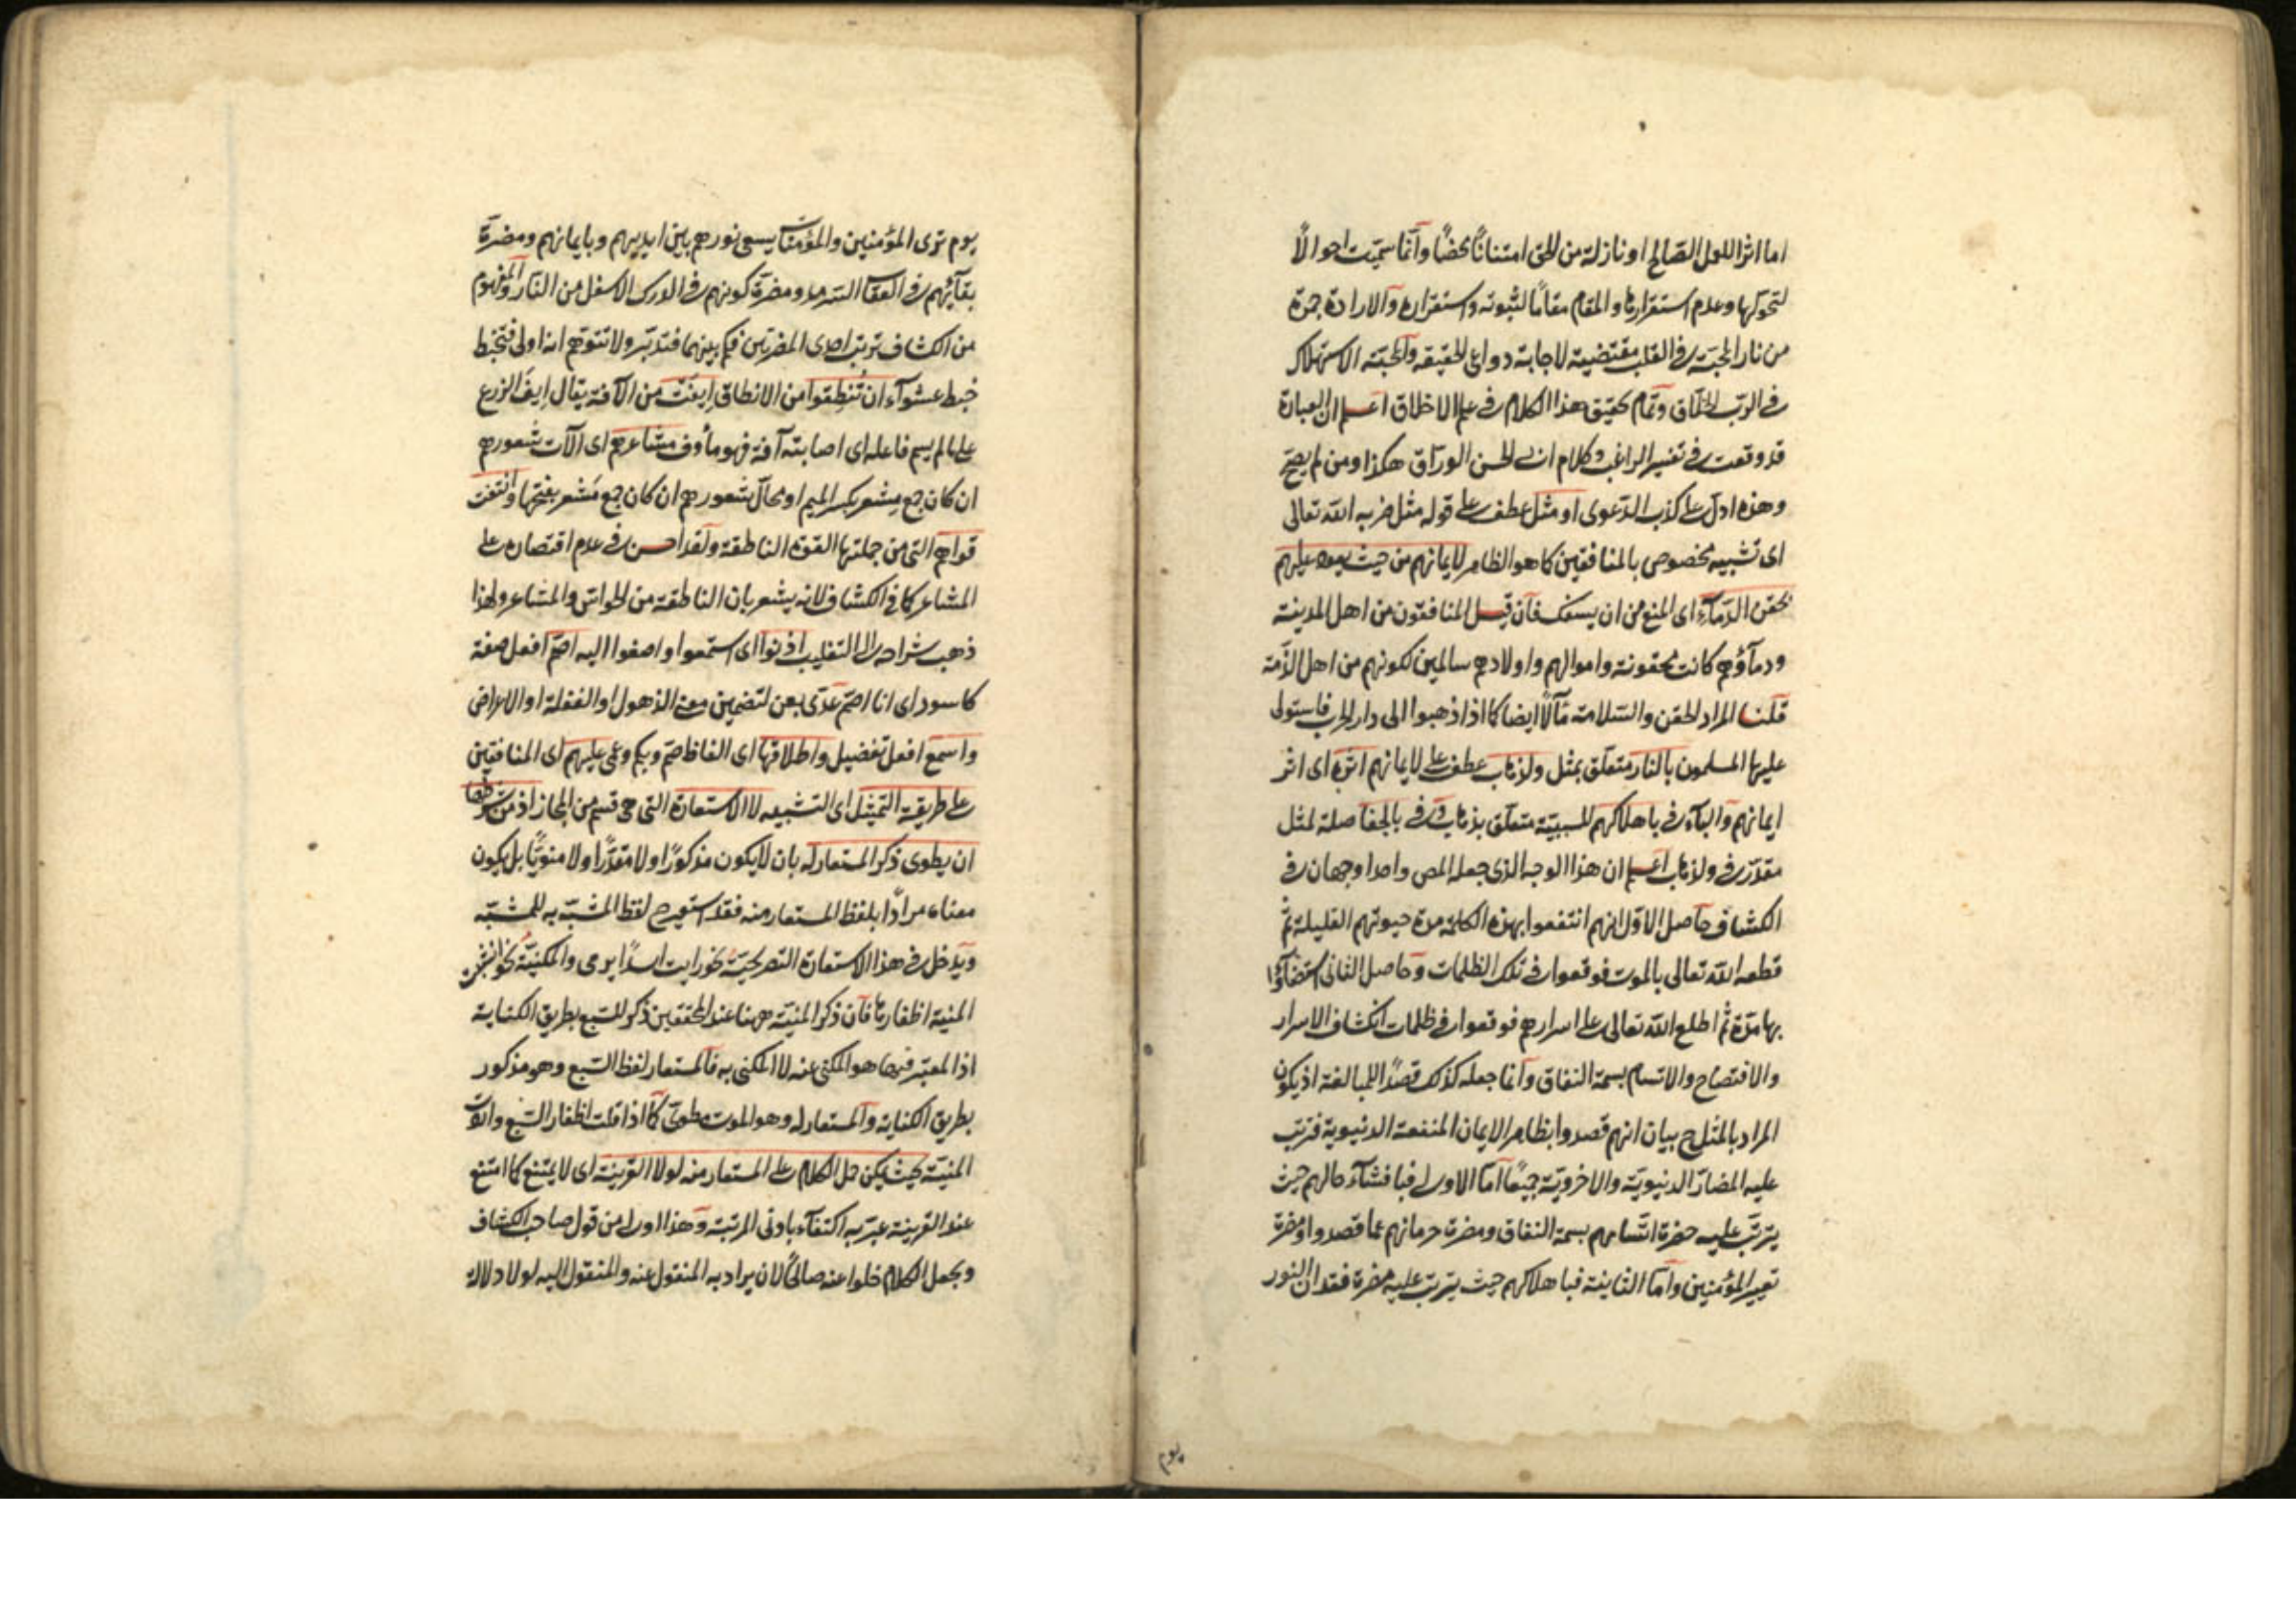 اما اثرا للعمل الصّالح او نازلة من الحق امتنانًا محضًا وآنما سمّيت احوالًا
لتحوّلها وعدم استقرارها والمقام مقامًا لثبوته واستقراره والارادة جمرة
من نار المحبّة في القلب مقتضية لاجابة دواعى الحقيقه والمحبّة الاستهلاك
في الرب الخلّاق وتمام تحقيق هذا الكلام في علم الاخلاق اعلم ان العبارة
قد وقعت في تفسير الراغب وكلام ابى الحسن الورّاق هكذا ومن لم يصحّ
وهذه ادلّ على كذب الدّعوى او مثل عطف على قوله مثل ضربه الله تعالى
اى تشبيه مخصوص بالمنافقين كما هو الظاهر لايمانهم من حيث يعود عليهم
بحقن الدّماء اى المنع من ان يسفك فان قيل المنافقون من اهل المدينة
ودمآؤهم كانت محقونة واموالهم واولادهم سالمين لكونهم من اهل الذّمة
قلنا المراد الحقن والسّلامة مآلًا ايضا كما اذا ذهبوا الى دار الحرب فاستولى
عليها المسلمون بالنار متعلّق بمثل ولذهاب عطف على لايمانهم اثره اى اثر
ايمانهم والبآء في باهلاكهم للسببيّة متعلّق بذهاب وفى بالجفا صلة لمثل
مقدّر في ولذهاب اعلم ان هذا الوجه الذى جعله المص واحدا وجهان في
الكشاف حاصل الاوّل انهم انتفعوا بهذه الكلمة مدة حيوتهم القليلة ثمّ
قطعه الله تعالى بالموت فوقعوا في تلك الظلمات وحاصل الثانى استضآؤا
بها مدّة ثم اطلع الله تعالى على اسرارهم فوقعوا في ظلمات انكشاف الاسرار
والافتضاح والاتسام بسمة النفاق وآنما جعله كذلك قصدًا للمبالغة اذ يكون
المراد بالمثل ح بيان انهم قصدوا بظاهر الايمان المنفعة الدنيوية فترتب
عليه المضارّ الدنيويّة والاخرويّة جميعًا امّا الاولى فبافشآء حالهم حيث
يترتّب عليه مضرة اتّسامهم بسمة النفاق ومضرة حرمانهم عما قصدوا ومضرة
تعيير المؤمنين وامّا الثانية فباهلاكهم حيث يترتب عليه مضرة فقدان النور
يوم
يوم ترى المؤمنين والمؤمنات يسعى نورهم بين ايديهم وبايمانهم ومضرة
بقآئهم في العقاب السّرمد ومضرة كونهم في الدرك الاسفل من النار والمفهوم
من الكشاف ترتب احدى المضرتين فكم بينهما فتدبّر ولا تتوهم انه اولى فتخبط
خبط عشوآء ان تُنطِقوا من الانطاق اِيفَتْ من الآفة يقال اِيفَ الزرع
على ما لم يسم فاعله اى اصابته آفة فهو مأوف مشاعرهم اى آلات شعورهم
ان كان جمع مِشعر بكسر الميم او محالّ شعورهم ان كان جمع مَشعر بفتحها وانتفت
قواهم التى من جملتها القوة الناطقة ولقد احسن في عدم اقتصاره على
المشاعر كما في الكشاف لانه يشعر بان الناطقة من الحواسّ والمشاعر ولهذا
ذهب شراحه الى التغليب اذنوا اى استمعوا واصغوا اليه اصمّ افعل صفة
كاسود اى انا اصمّ عدّى بعن لتضمين معنى الذهول او الغفلة او الاعراض
واسمع افعل تفضيل واطلاقها اى الفاظ صمّ وبكم وعمى عليهم اى المنافقين
على طريقة التمثيل اى التشبيه لا الاستعارة التى هى قسم من المجاز اذ من شرطها
ان يطوى ذكر المستعار له بان لا يكون مذكورًا ولا مقدّرًا ولا منويًّا بل يكون
معناه مرادًا بلفظ المستعار منه فقد استعير ح لفظ المشبّه به للمشبّه
ويدخل في هذا الاستعارة التصريحيّة نحو رايت اسدًا يرمى والمكنيّة نحو انشبت
المنية اظفارها فان ذكر المنيّة ههنا عند المحققين ذكر للسّبع بطريق الكناية
اذ المعتبر فيها هو المكنى عنه لا المكنى به فالمستعار لفظ السّبع وهو مذكور
بطريق الكناية والمستعار له وهو الموت مطوىّ كما اذا قلت اظفار السّبع واردت
المنيّة بحيث يمكن حمل الكلام على المستعار منه لولا القرينة اى لا يمتنع كما امتنع
عند القرينة عبّر به اكتفآء بادنى المرتبة وهذا اولى من قول صاحب الكشاف
ويجعل الكلام خلوا عنه صالحًا لان يراد به المنقول عنه والمنقول اليه لولا دلالة